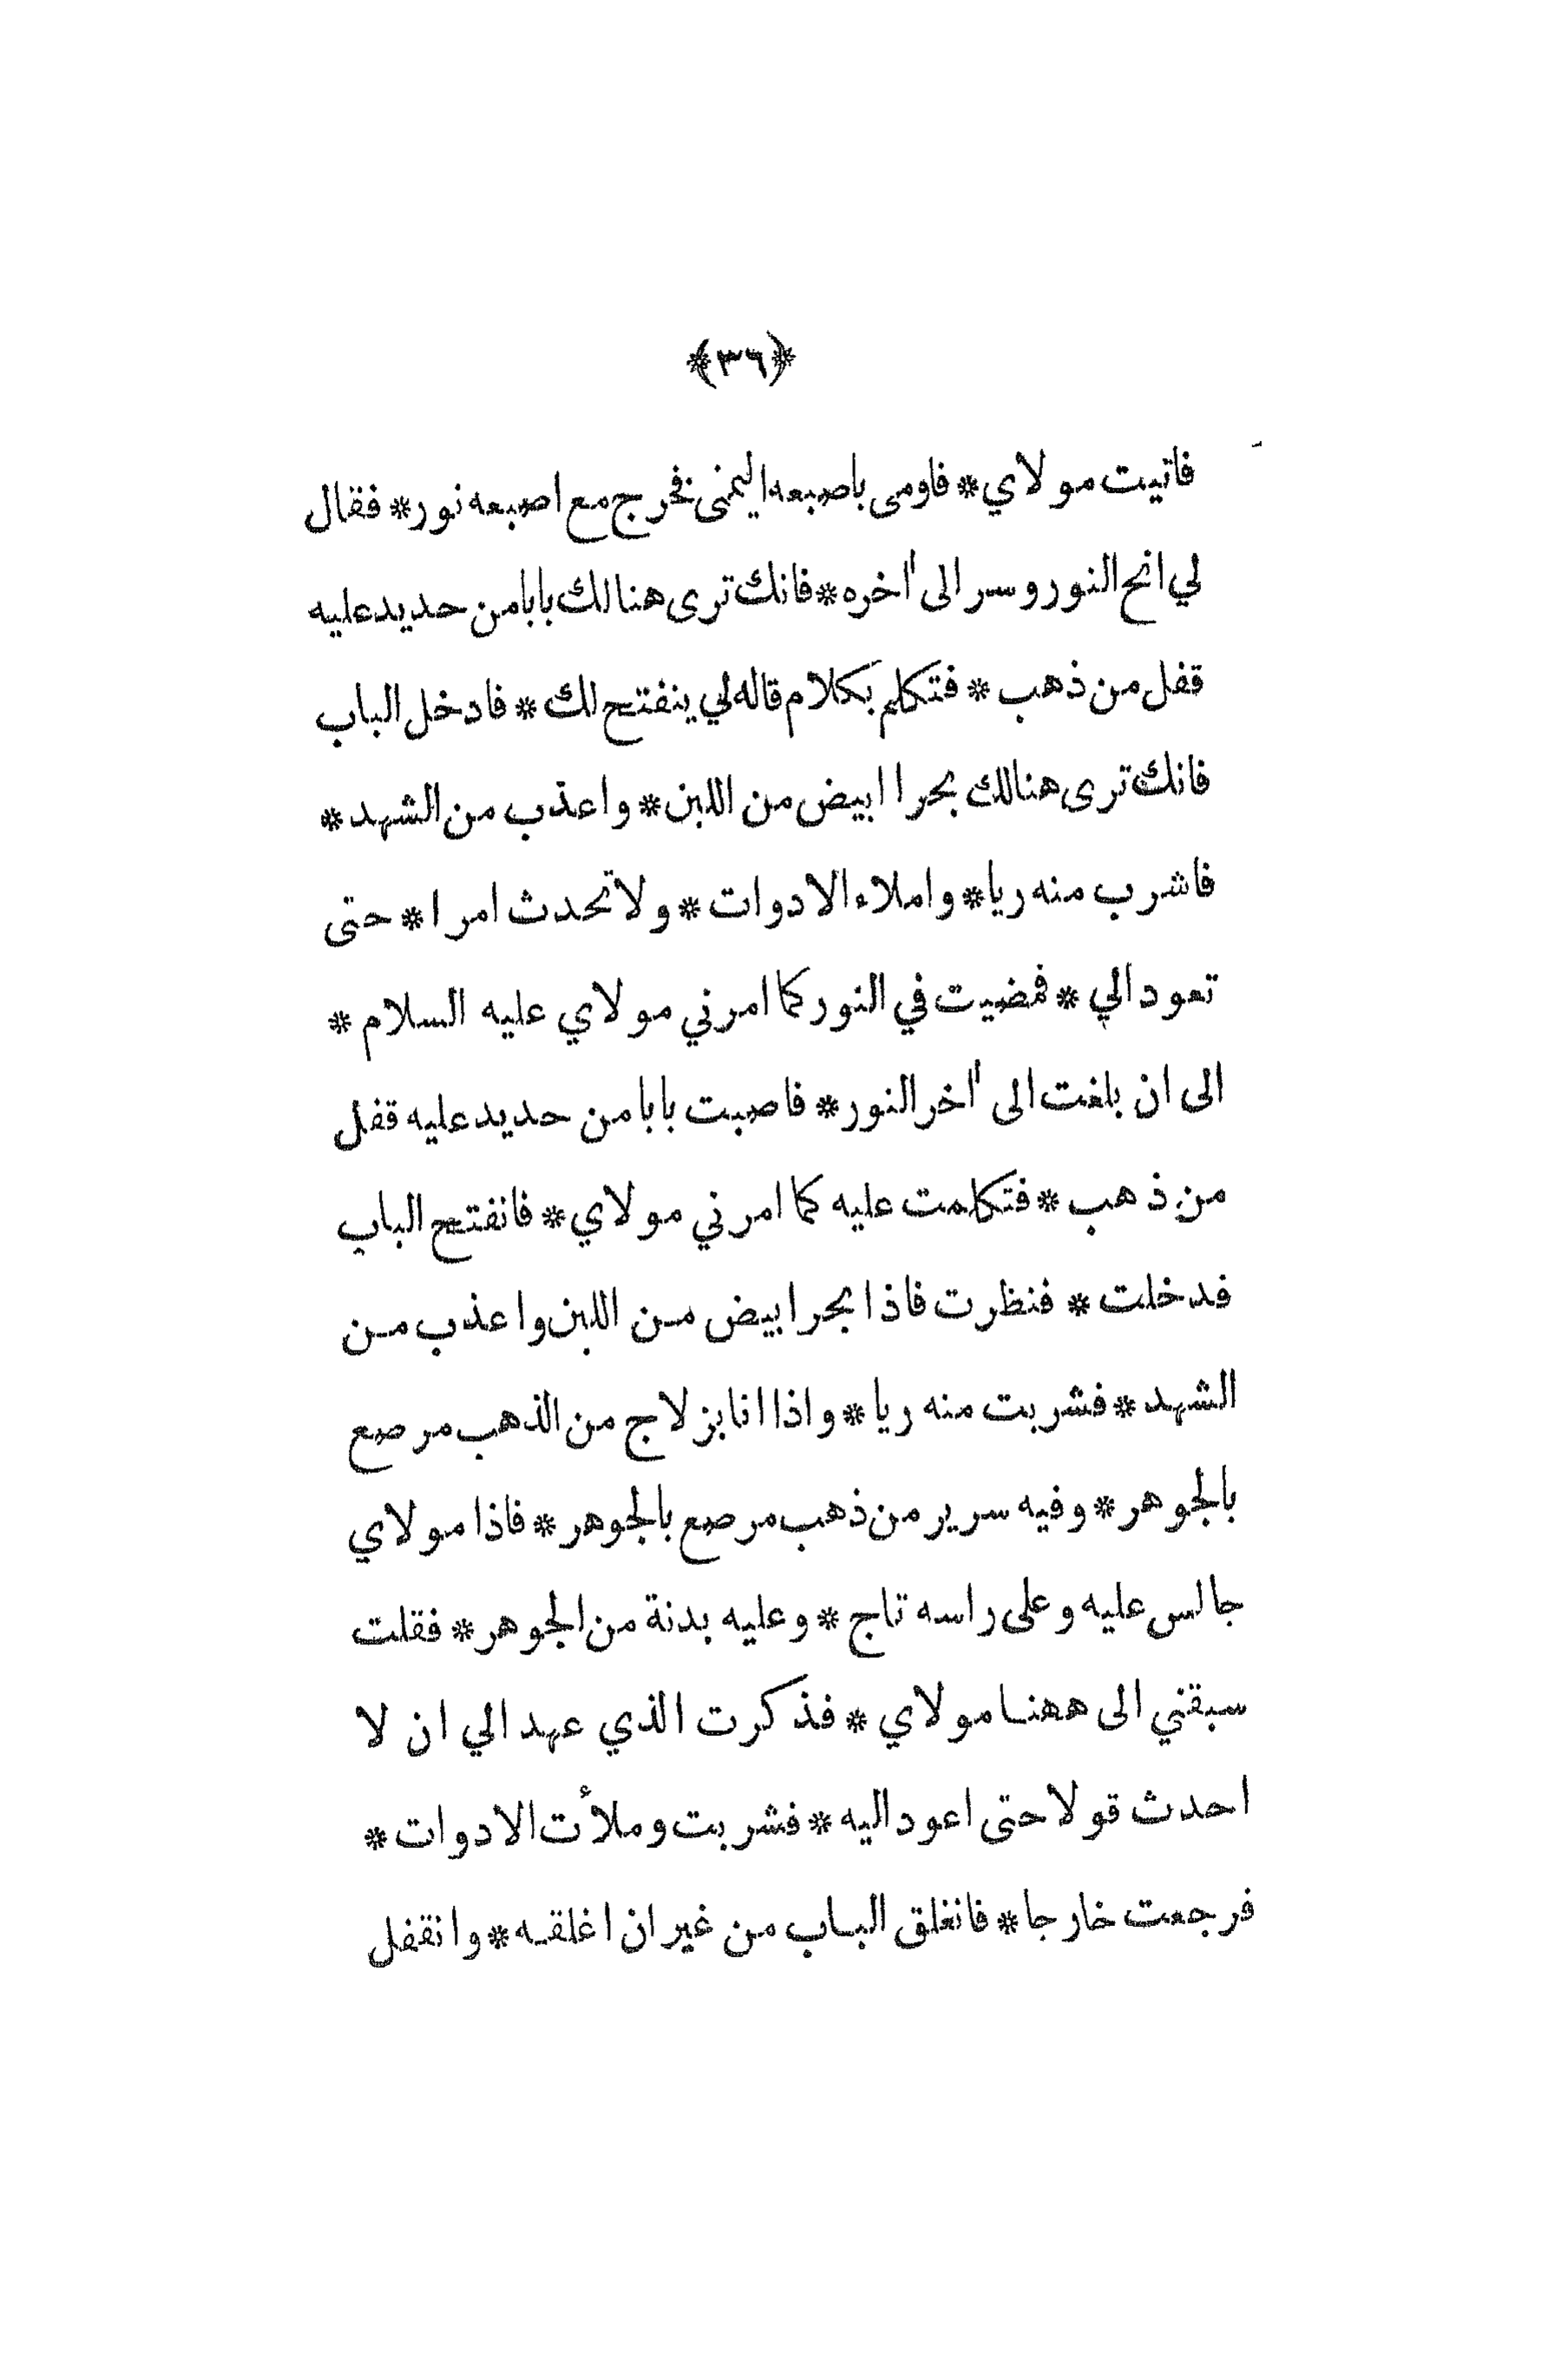 ﴿٣٦﴾
فاتيت مولاي * فاومى باصبعه اليمنى فخرج مع اصبعه نور * فقال
لي انح النور وسر الى اٰخره * فانك ترى هنالك بابا من حديد عليه
قفل من ذهب * فتكلم بكلام قاله لي ينفتح لك * فادخل الباب
فانك ترى هنالك بحرا ابيض من اللبن * واعذب من الشهد *
فاشرب منه ريا * واملاء الادوات * ولا تحدث امرا * حتى
تعود الي * فمضيت في النور كما امرني مولاي عليه السلام *
الى ان بلغت الى اٰخر النور * فاصبت بابا من حديد عليه قفل
من ذهب * فتكلمت عليه كما امرني مولاي * فانفتح الباب
فدخلت * فنظرت فاذا بحر ابيض من اللبن واعذب من
الشهد * فشربت منه ريا * واذا انا بزلاج من الذهب مرصع
بالجوهر * وفيه سرير من ذهب مرصع بالجوهر * فاذا مولاي
جالس عليه وعلى راسه تاج * وعليه بدنة من الجوهر * فقلت
سبقني الى ههنا مولاي * فذكرت الذي عهد الي ان لا
احدث قولا حتى اعود اليه * فشربت وملأت الادوات *
فرجعت خارجا * فانغلق الباب من غير ان اغلقه * وانقفل